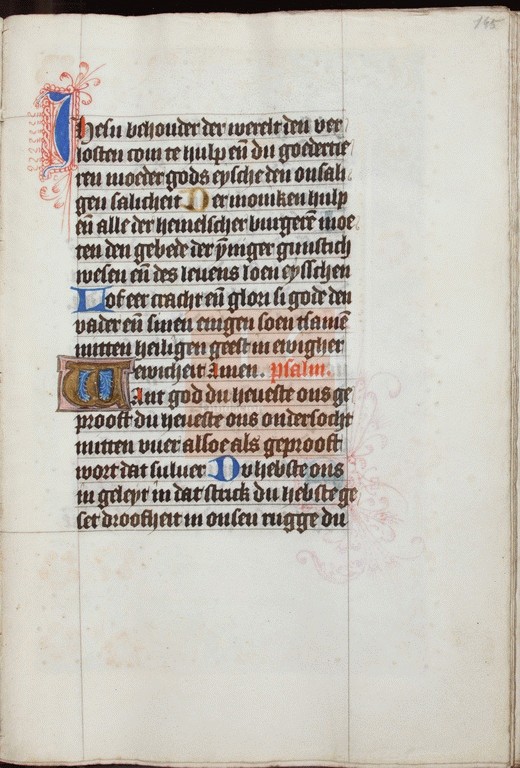 145
Ihesu behouder der werelt den ver
losten com te hulp en̄ du goedertie
ren moeder gods eysche den onsali
gen salicheit Der moniken hulp
en̄ alle der hemelscher burgerē moe
ten den gebede der ȳniger gunstich
wesen en̄ des leuens loen eysschen
Lof eer cracht en̄ glori si gode den
vader en̄ sinen enigen soen tsamē
mitten heiligen geest in ewigher
ewicheit Amen. psalm.
Want god du heueste ons ge
prooft du heueste ons ondersocht
mitten vuer alsoe als geprooft
wort dat siluer Du hebste ons
in geleyt in dat strick du hebste ge
set droefheit in onsen rugge du